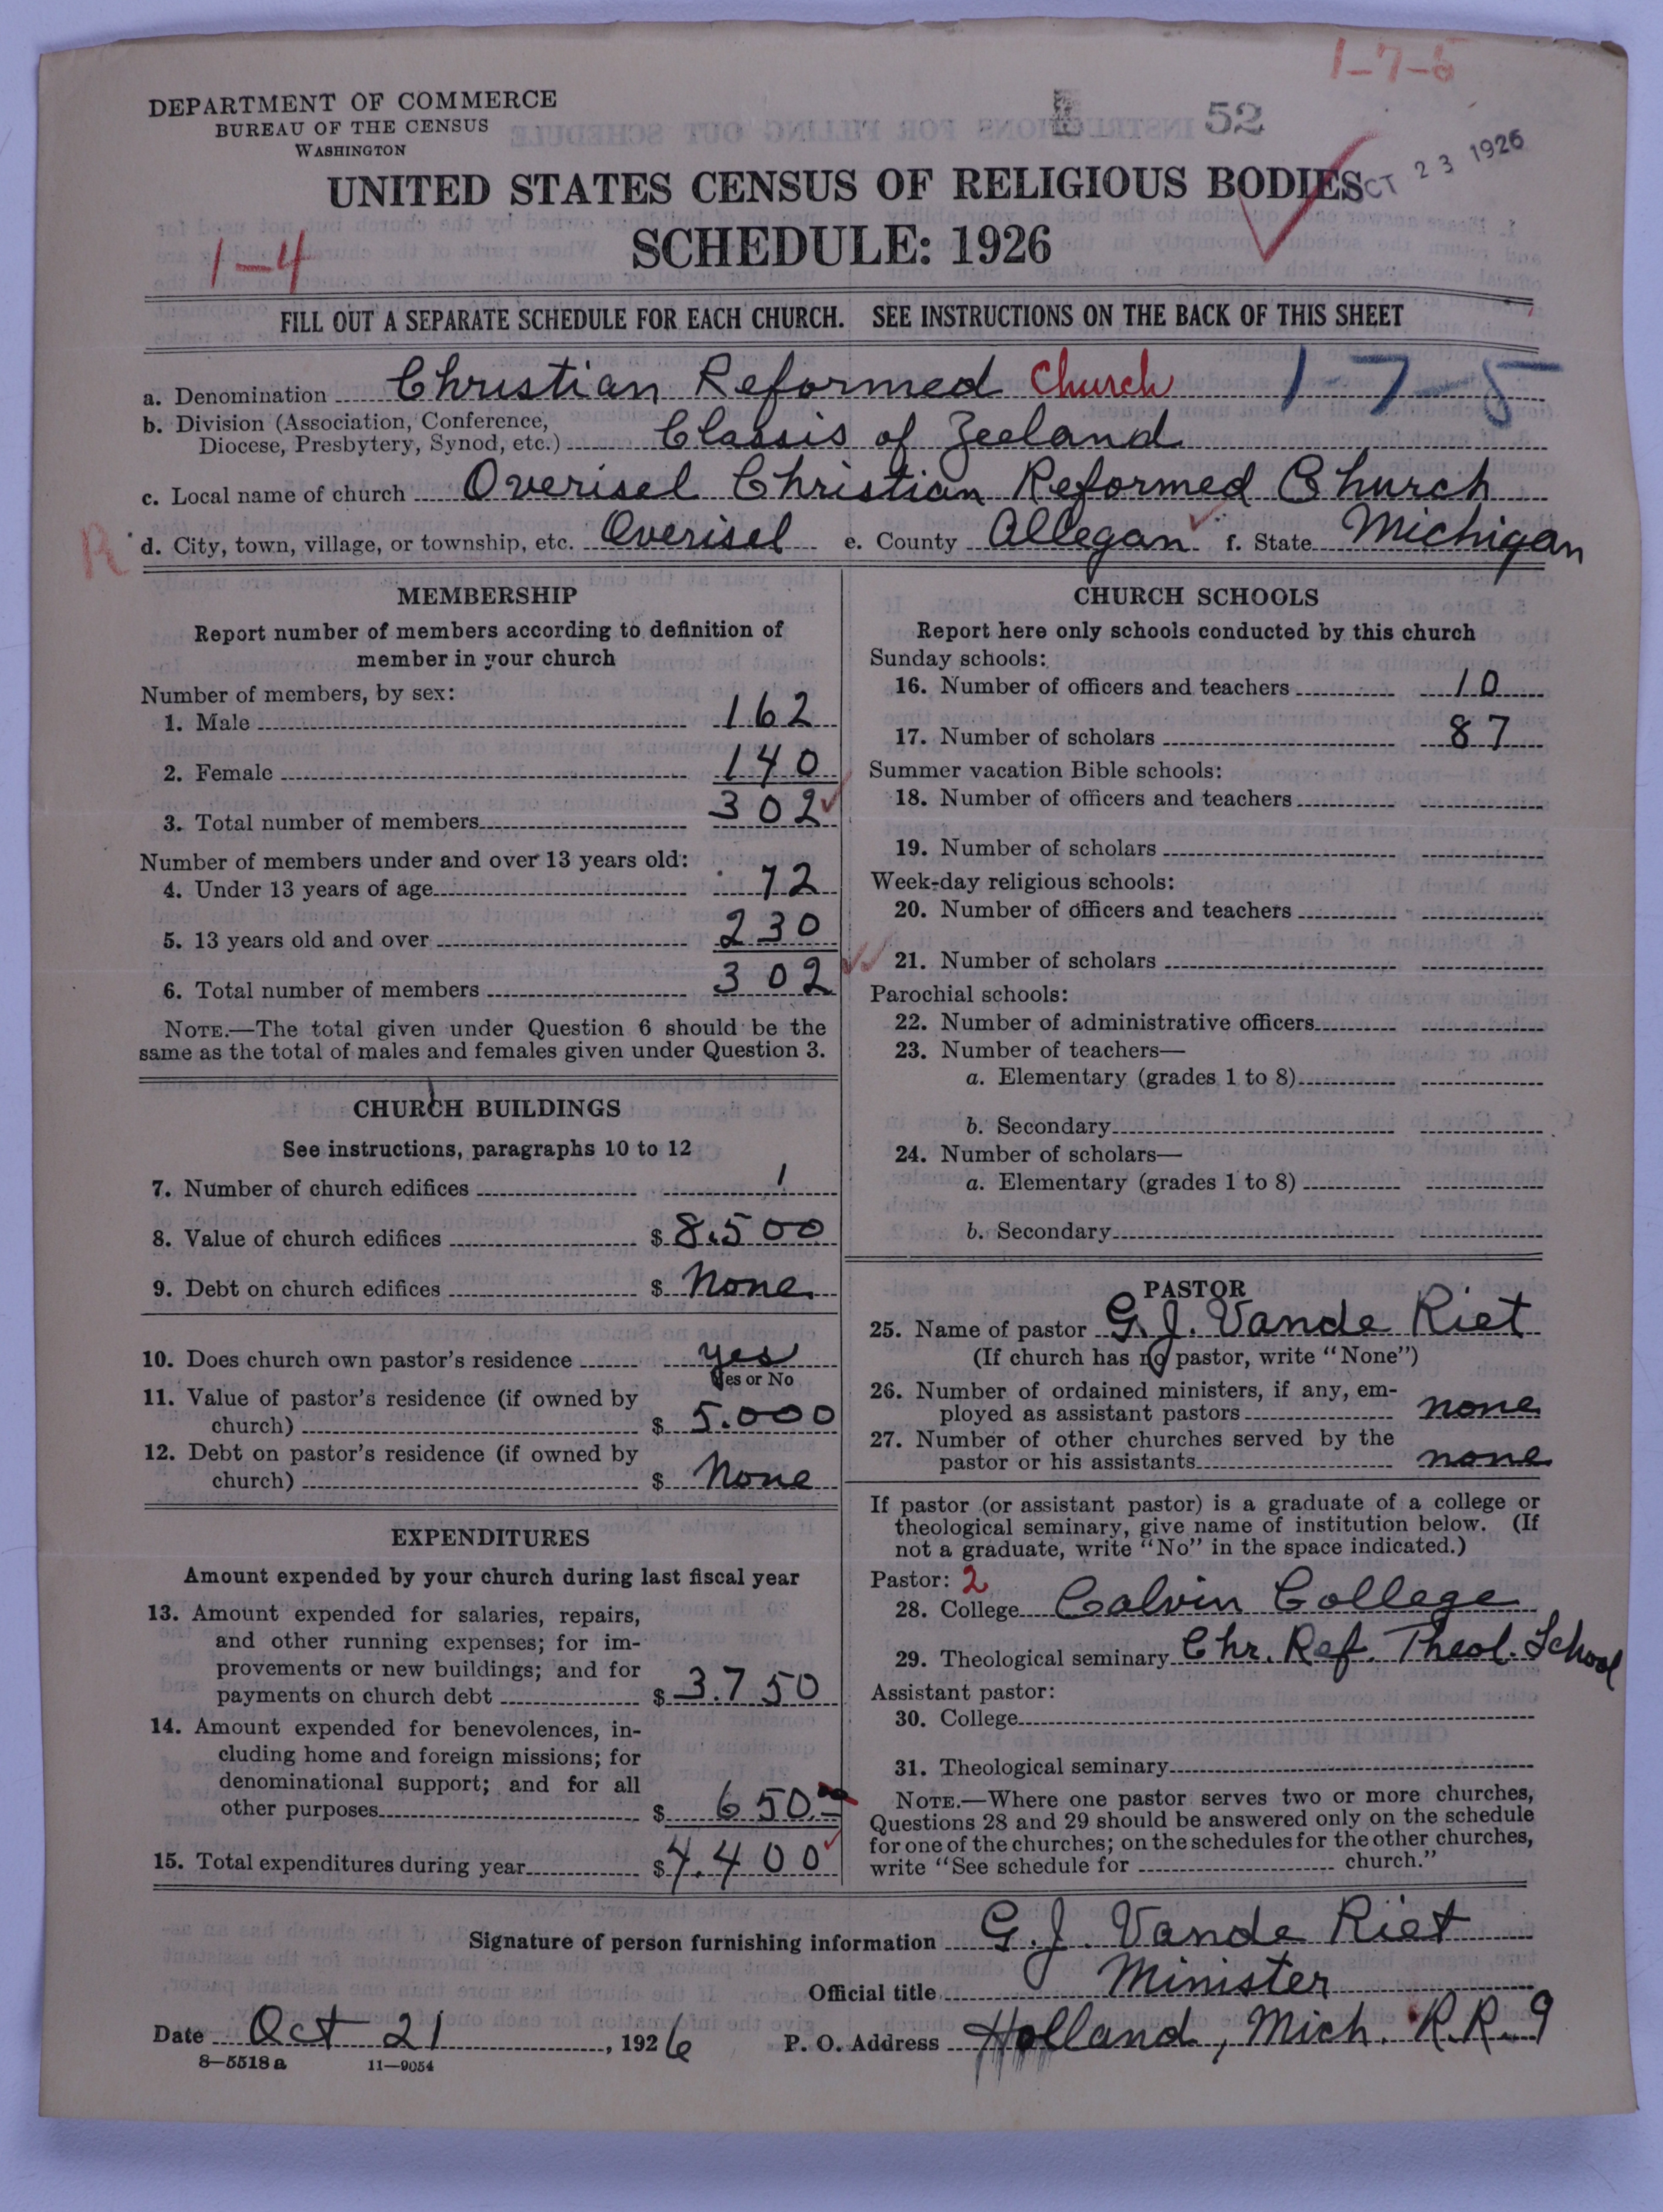 1-7-5
DEPARTMENT OF COMMERCE
BUREAU OF THE CENSUS
WASHINGTON
52
OCT 23 1926
UNITED STATES CENSUS OF RELIGIOUS BODIES
SCHEDULE: 1926
1-4
FILL OUT A SEPARATE SCHEDULE FOR EACH CHURCH. SEE INSTRUCTIONS ON THE BACK OF THIS SHEET
a. Denomination Christian Reformed Church 1-7-5
b. Division (Association, Conference,
Diocese, Presbytery, Synod, etc.) Classis of Zeeland
c. Local name of church Overisel Christian Reformed Church
R d. City, town, village, or township, etc. Overisel e. County Allegan f. State Michigan
MEMBERSHIP
Report number of members according to definition of
member in your church
Number of members, by sex:
1. Male 162
2. Female 140
3. Total number of members 302
Number of members under and over 13 years old:
4. Under 13 years of age 72
5. 13 years old and over 230
6. Total number of members 302
NOTE.—The total given under Question 6 should be the
same as the total of males and females given under Question 3.
CHURCH BUILDINGS
See instructions, paragraphs 10 to 12
7. Number of church edifices 1
8. Value of church edifices $ 8.500
9. Debt on church edifices $ None
10. Does church own pastor's residence yes
Yes or No
11. Value of pastor's residence (if owned by
church) $ 5.000
12. Debt on pastor's residence (if owned by
church) $ None
EXPENDITURES
Amount expended by your church during last fiscal year
13. Amount expended for salaries, repairs,
and other running expenses; for im-
provements or new buildings; and for
payments on church debt $ 3.750
14. Amount expended for benevolences, in-
cluding home and foreign missions; for
denominational support; and for all
other purposes $ 650.00
15. Total expenditures during year $ 4.400
CHURCH SCHOOLS
Report here only schools conducted by this church
Sunday schools:
16. Number of officers and teachers 10
17. Number of scholars 87
Summer vacation Bible schools:
18. Number of officers and teachers
19. Number of scholars
Week-day religious schools:
20. Number of officers and teachers
21. Number of scholars
Parochial schools:
22. Number of administrative officers
23. Number of teachers—
a. Elementary (grades 1 to 8)
b. Secondary
24. Number of scholars—
a. Elementary (grades 1 to 8)
b. Secondary
PASTOR
25. Name of pastor G. J. Vande Riet
(If church has no pastor, write "None")
26. Number of ordained ministers, if any, em-
ployed as assistant pastors none
27. Number of other churches served by the
pastor or his assistants none
If pastor (or assistant pastor) is a graduate of a college or
theological seminary, give name of institution below. (If
not a graduate, write "No" in the space indicated.)
Pastor: 2
28. College Calvin College
29. Theological seminary Chr. Ref. Theol. School
Assistant pastor:
30. College
31. Theological seminary
NOTE.—Where one pastor serves two or more churches,
Questions 28 and 29 should be answered only on the schedule
for one of the churches; on the schedules for the other churches,
write "See schedule for church."
Signature of person furnishing information G. J. Vande Riet
Official title Minister
Date Oct 21, 1926 P. O. Address Holland, Mich. R.R. 9
8-5518 a 11-9054